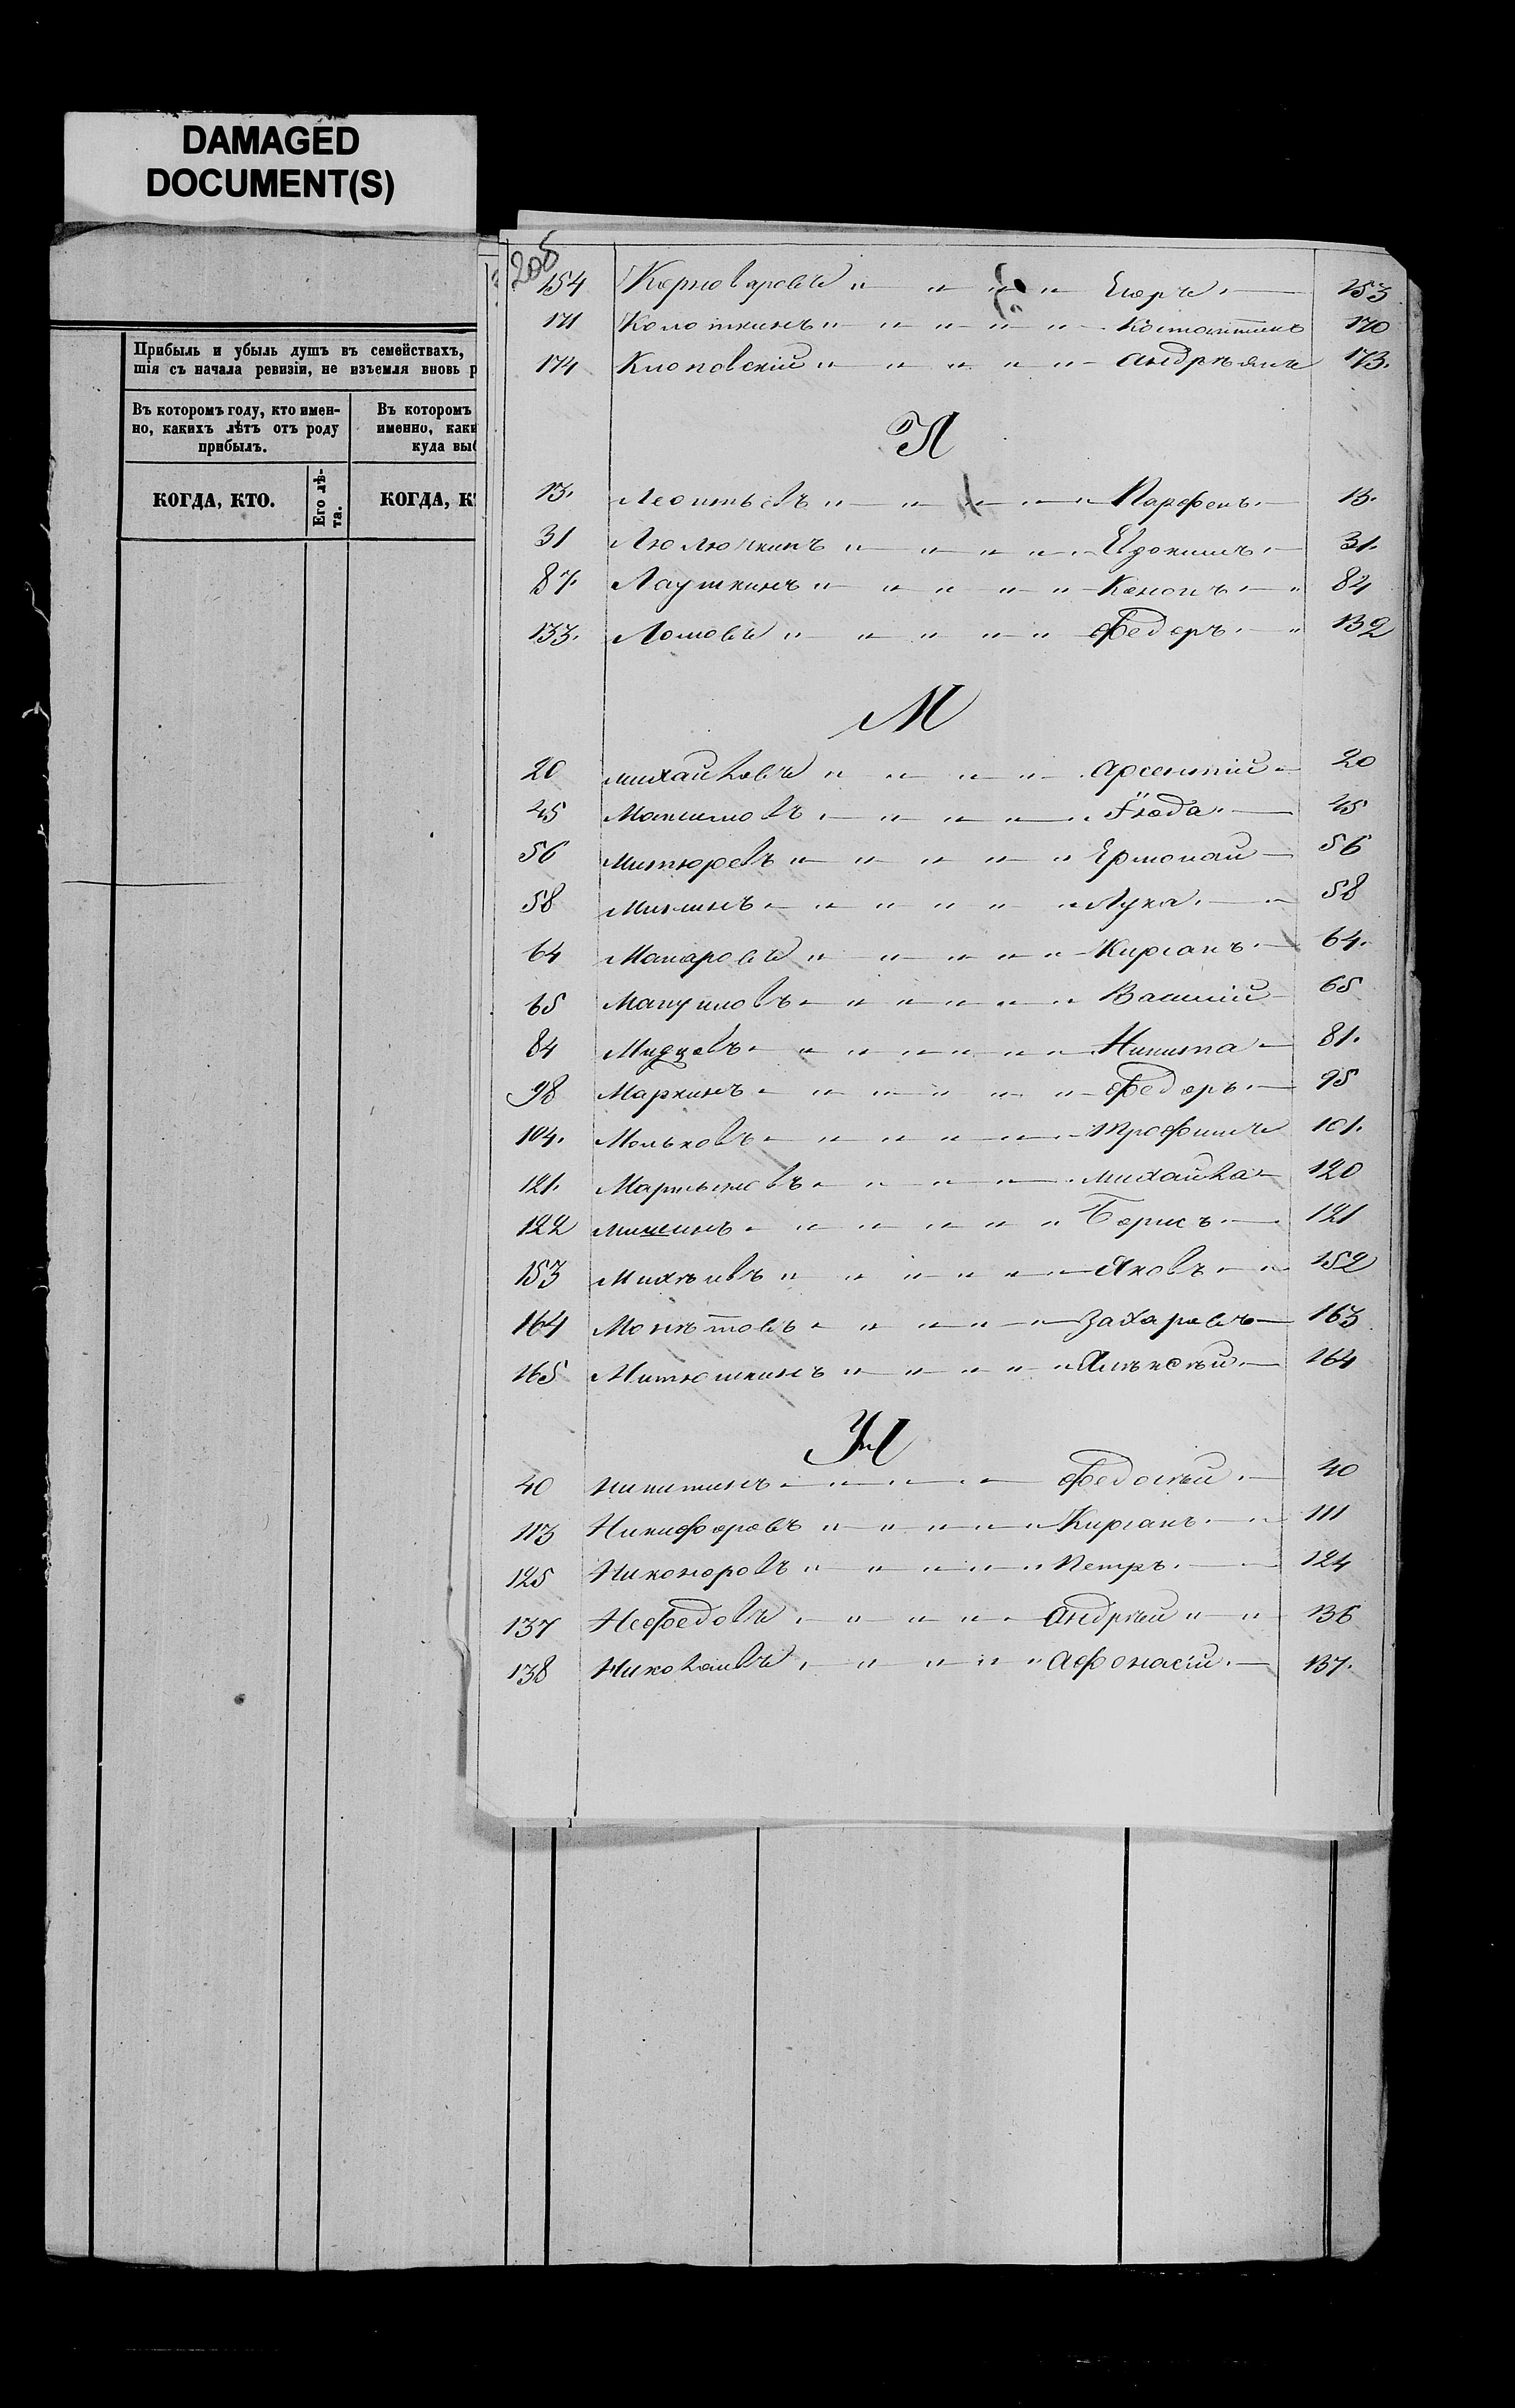 DAMAGED
DOCUMENT(S)
Прибыль и убыль душъ въ семействахъ,
шія съ начала ревизіи, не изъемля вновь р
Въ которомъ году, кто имен-
но, какихъ лѣтъ отъ роду
прибылъ.
Въ которомъ
именно, каки
куда выб
КОГДА, КТО.
Его лѣ-
та.
КОГДА, К
205
154 Корноваровъ Егоръ 153
171 Колоткинъ 170
174 Клоповскій Андрѣянъ 173.
Л
13. Леонтьевъ Парфенъ 13.
31 Люлюкинъ Евдокимъ 31.
87. Лаушкинъ Кононъ 84
133. Ломовъ Федоръ 132
М
20 Михайловъ Арсентій 20
45 Максимовъ Іюда 45
56 Митюревъ Ермолай 56
58 Лука 58
64 Макаровъ Кирсанъ 64.
65 Мануиловъ Василій 65
84 Никита 81.
98 Маркинъ Федоръ 95
104. Мольковъ Трофимъ 101.
121. Мартыновъ Михайла 120
122 Мишинъ Борисъ 121
153 Михѣивъ Яковъ 152
164 Захаровъ 163
165 Митюшкинъ Алѣксѣй 164
Н
40 Никитинъ Федосѣй 40
113 Никифоровъ Кирсанъ 111
125 Никоноровъ Петръ 124
137 Нефедовъ Андрѣй 136
138 Николаивъ Афонасій 137.